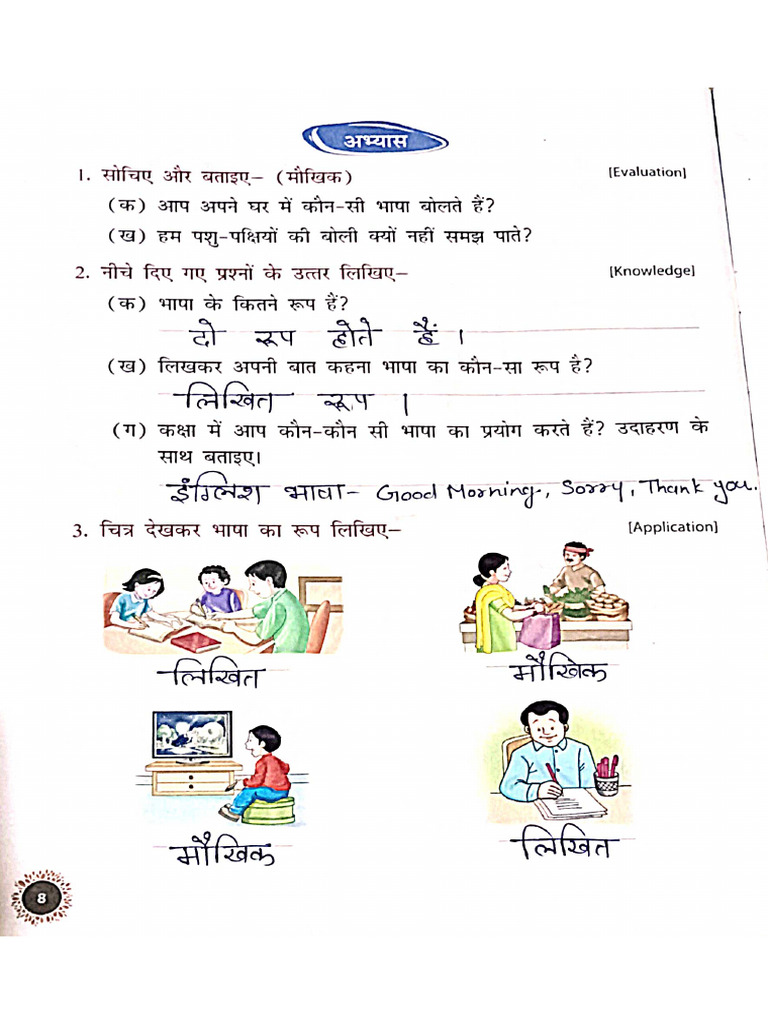 अभ्यास
1. सोचिए और बताइए– (मौखिक) [Evaluation]
(क) आप अपने घर में कौन-सी भाषा बोलते हैं?
(ख) हम पशु-पक्षियों की बोली क्यों नहीं समझ पाते?
2. नीचे दिए गए प्रश्नों के उत्तर लिखिए– [Knowledge]
(क) भाषा के कितने रूप हैं?
दो रूप होते हैं।
(ख) लिखकर अपनी बात कहना भाषा का कौन-सा रूप है?
लिखित रूप।
(ग) कक्षा में आप कौन-कौन सी भाषा का प्रयोग करते हैं? उदाहरण के
साथ बताइए।
इंग्लिश भाषा- Good Morning, Sorry, Thank you.
3. चित्र देखकर भाषा का रूप लिखिए– [Application]
लिखित मौखिक
मौखिक लिखित
8